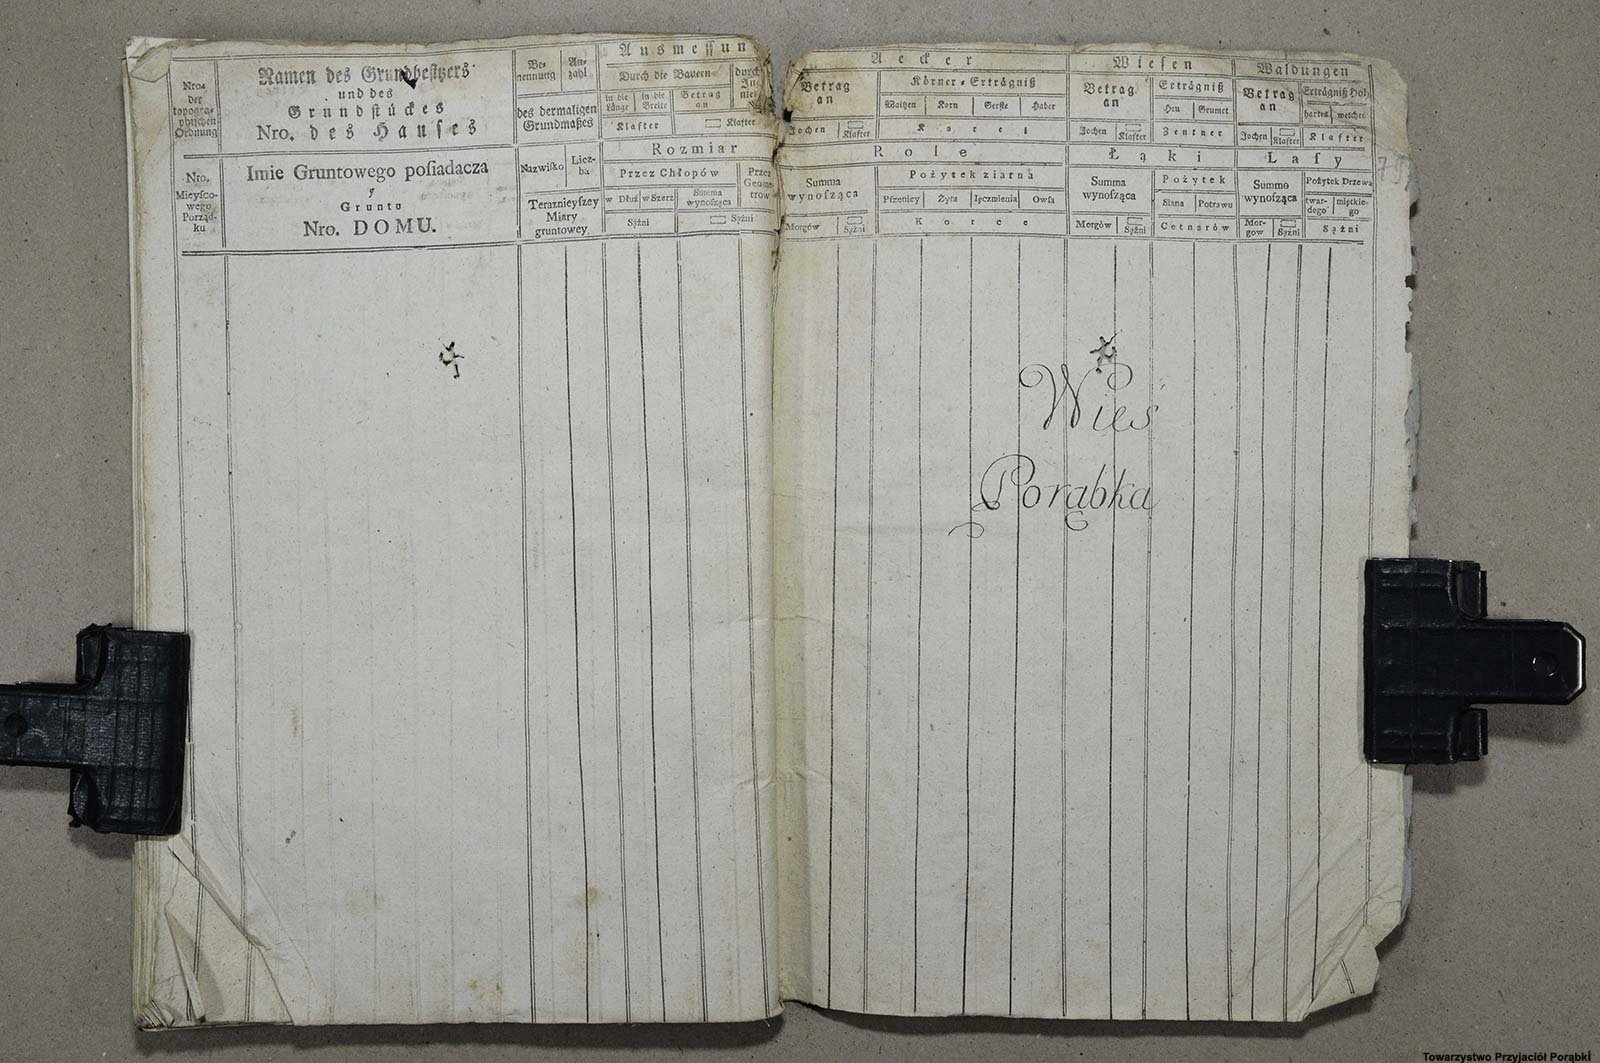 Nro.
der
topogra-
phischen
Ordnung
Namen des Grundbesitzers
und des
Grundstückes
Nro. des Hauses
Be-
nennung
An-
zahl
des dermaligen
Grundmaßes
Ausmessun
Durch die Bauern
in die
Länge
in die
Breite
Betrag
an
Klafter
Klafter
durch
In
nie
Nro.
Mieysco-
wego
Porząd-
ku
Imie Gruntowego posiadacza
y
Gruntu
Nro. DOMU.
Nazwisko
Licz-
ba
Teraznieyszey
Miary
gruntowey
Rozmiar
Przez Chłopów
w Dłuż
w Szerz
Summa
wynosząca
Sążni
Sążni
Przez
Geome-
trow
Aecker
Betrag
an
Jochen
Klafter
Körner-Erträgniß
Waitzen
Korn
Gerste
Haber
Korez
Wiesen
Betrag
an
Jochen
Klafter
Erträgniß
Heu
Grumet
Zentner
Waldungen
Betrag
an
Jochen
Klafter
Erträgniß Hol
hartes
weiches
Klafter
Role
Summa
wynosząca
Morgów
Sążni
Pożytek ziarna
Pszenicy
Żyta
Jęczmienia
Owsa
Korce
Łąki
Summa
wynosząca
Morgów
Sążni
Pożytek
Siana
Potrawu
Cetnarów
Lasy
Summo
wynosząca
Mor-
gow
Sążni
Pożytek Drzewa
twar-
dego
miętkie-
go
Sążni
Wieś
Porąbka
Towarzystwo Przyjaciół Porąbki